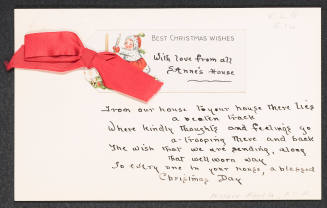 BEST CHRISTMAS WISHES
With love from all
St Anne's House
From our house to your house there lies
a beaten track
Where kindly thoughts and feelings go
a-trooping there and back
The wish that we are sending, along
that well worn way
To every one in your house, a blessed
Christmas Day